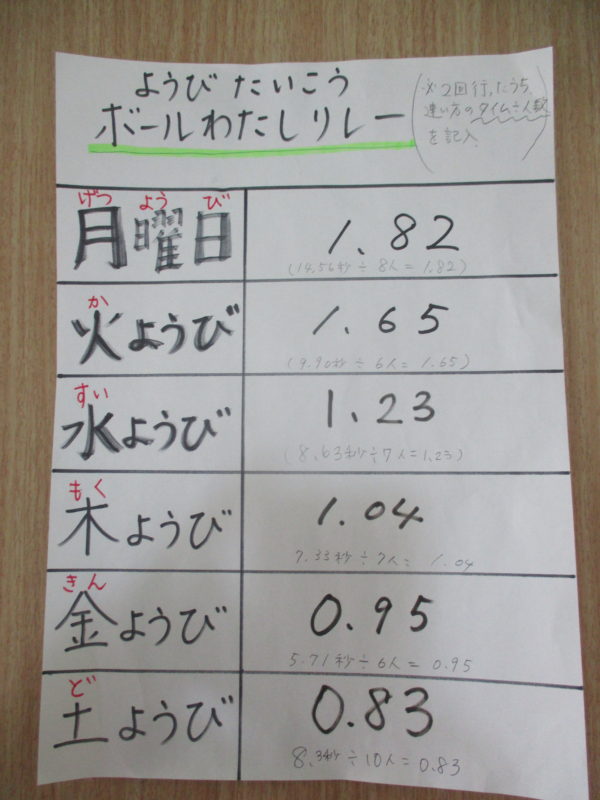 ようび たいこう
ボールわたしリレー
(※2回行ったうち
速い方のタイム÷人数
を記入)
げつ よう び
月曜日
1.82
(14.56秒÷8人=1.82)
か
火ようび
1.65
(9.90秒÷6人=1.65)
すい
水ようび
1.23
(8.63秒÷7人=1.23)
もく
木ようび
1.04
7.33秒÷7人= 1.04
きん
金ようび
0.95
5.71秒÷6人=0.95
ど
土ようび
0.83
8.3秒÷10人=0.83